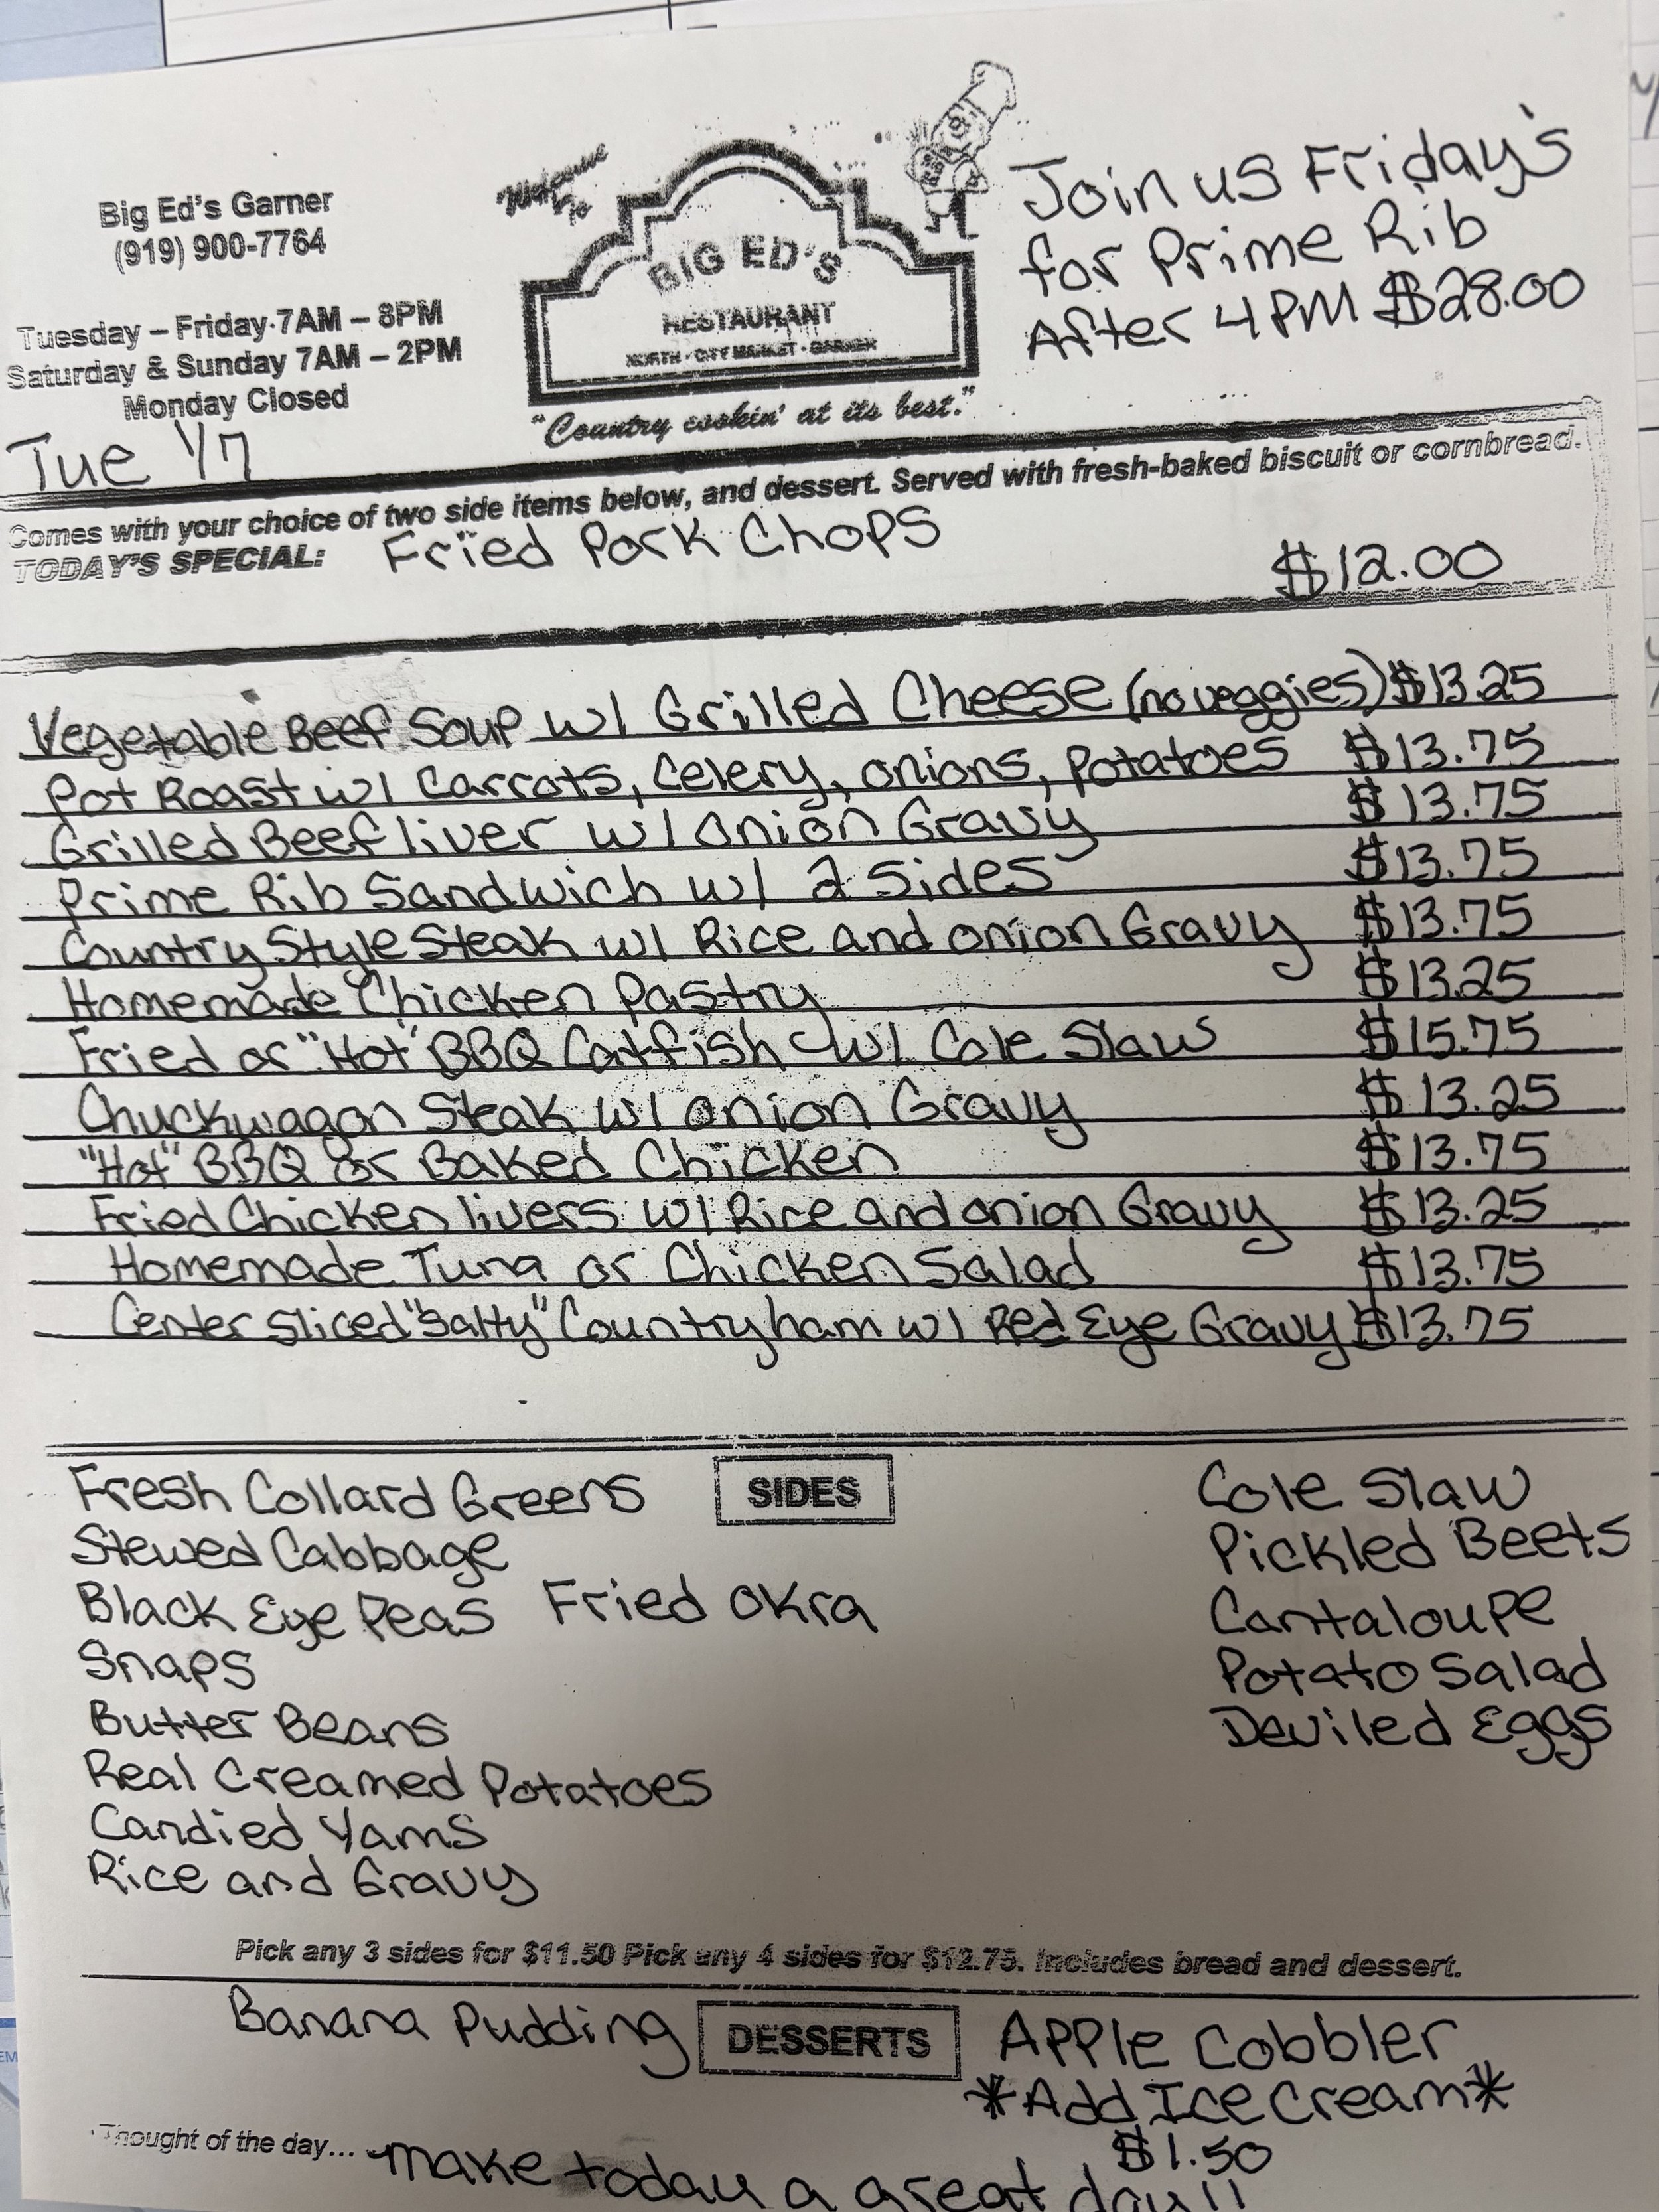 Big Ed's Garner
(919) 900-7764
Tuesday – Friday 7AM – 8PM
Saturday & Sunday 7AM – 2PM
Monday Closed
Welcome to
BIG ED'S
RESTAURANT
NORTH • CITY MARKET • GARNER
"Country cookin' at its best."
Join us Friday's
for Prime Rib
After 4PM $28.00
Tue 1/7
Comes with your choice of two side items below, and dessert. Served with fresh-baked biscuit or cornbread.
TODAY'S SPECIAL: Fried Pork Chops
$12.00
Vegetable Beef Soup w/ Grilled Cheese (no veggies) $13.25
Pot Roast w/ Carrots, Celery, onions, potatoes $13.75
Grilled Beef liver w/ onion Gravy $13.75
Prime Rib Sandwich w/ 2 Sides $13.75
Country Style Steak w/ Rice and onion Gravy $13.75
Homemade Chicken Pastry $13.25
Fried or "Hot" BBQ Catfish w/ Cole Slaw $15.75
Chuckwagon Steak w/ onion Gravy $13.25
"Hot" BBQ or Baked Chicken $13.75
Fried Chicken livers w/ Rice and onion Gravy $13.25
Homemade Tuna or Chicken Salad $13.75
Center Sliced "Salty" Country ham w/ Red Eye Gravy $13.75
SIDES
Fresh Collard Greens
Stewed Cabbage
Black Eye Peas
Snaps
Butter Beans
Real Creamed Potatoes
Candied Yams
Rice and Gravy
Fried Okra
Cole Slaw
Pickled Beets
Cantaloupe
Potato Salad
Deviled Eggs
Pick any 3 sides for $11.50 Pick any 4 sides for $12.75. Includes bread and dessert.
DESSERTS
Banana Pudding
Apple Cobbler
*Add Ice Cream*
$1.50
Thought of the day... make today a great day!!